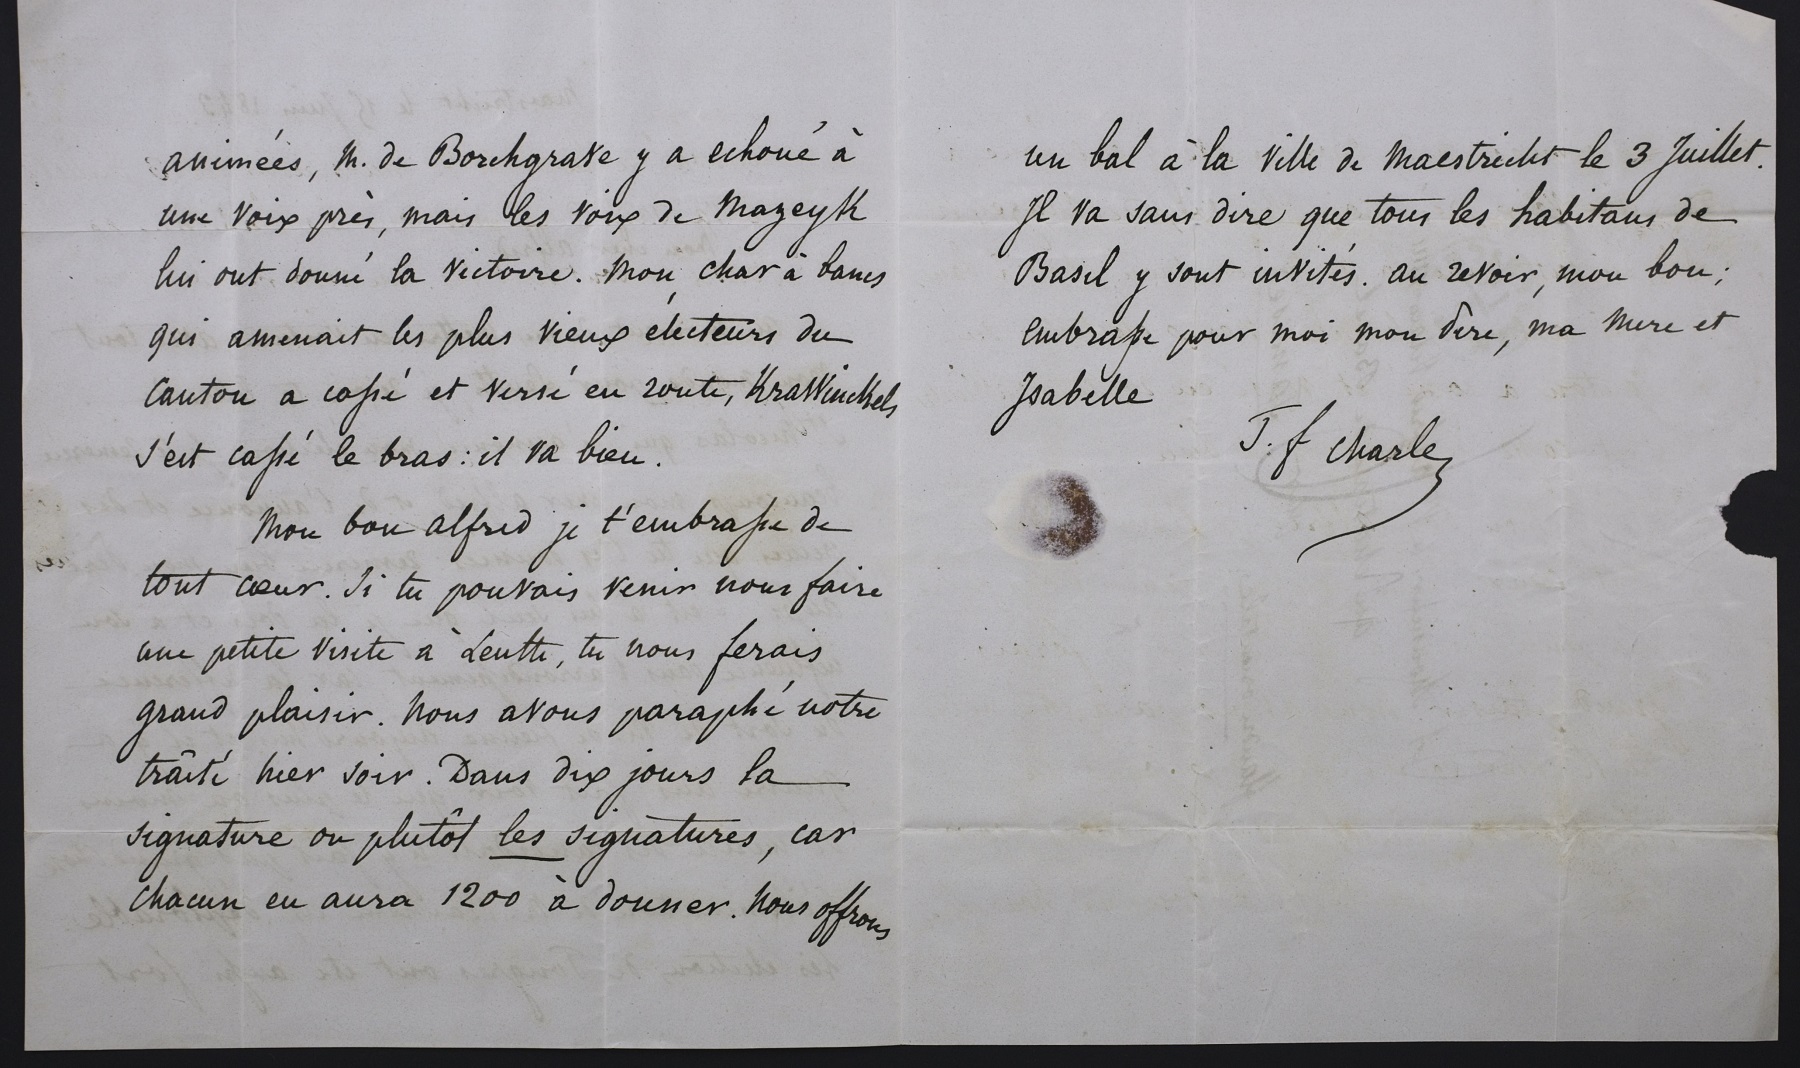 animées, M. de Borchgrave y a echoué à
une voix près, mais les voix de Mazeyk
lui ont donné la victoire. Mon char à bancs
qui amenait les plus vieux électeurs du
canton a cassé et versé en route, Krawinckels
s'est cassé le bras : il va bien.
Mon bon alfred je t'embrasse de
tout cœur. Si tu pouvais venir nous faire
une petite visite à Leutte, tu nous ferais
grand plaisir. Nous avons paraphé notre
traité hier soir. Dans dix jours la
signature ou plutôt les signatures, car
chacun en aura 1200 à donner. Nous offrons
un bal à la ville de Maestricht le 3 Juillet.
Il va sans dire que tous les habitans de
Basel y sont invités. au revoir, mon bon ;
embrasse pour moi mon Père, ma Mere et
Isabelle
T. f Charles